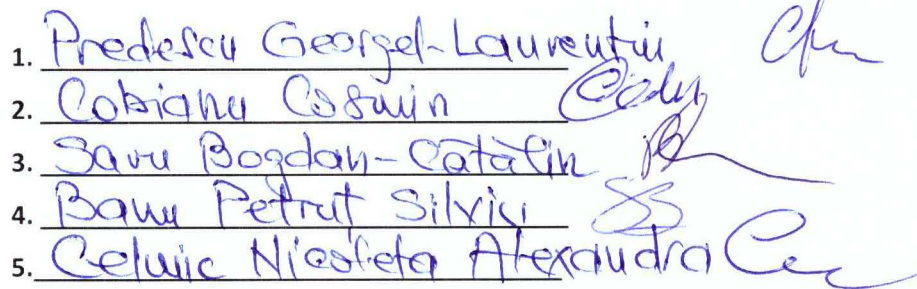 1. Predescu Georgel-Laurentiu
2. Cobianu Cosmin
3. Savu Bogdan-Cătălin
4. Banu Petruț Silviu
5. Celmic Nicoleta Alexandra